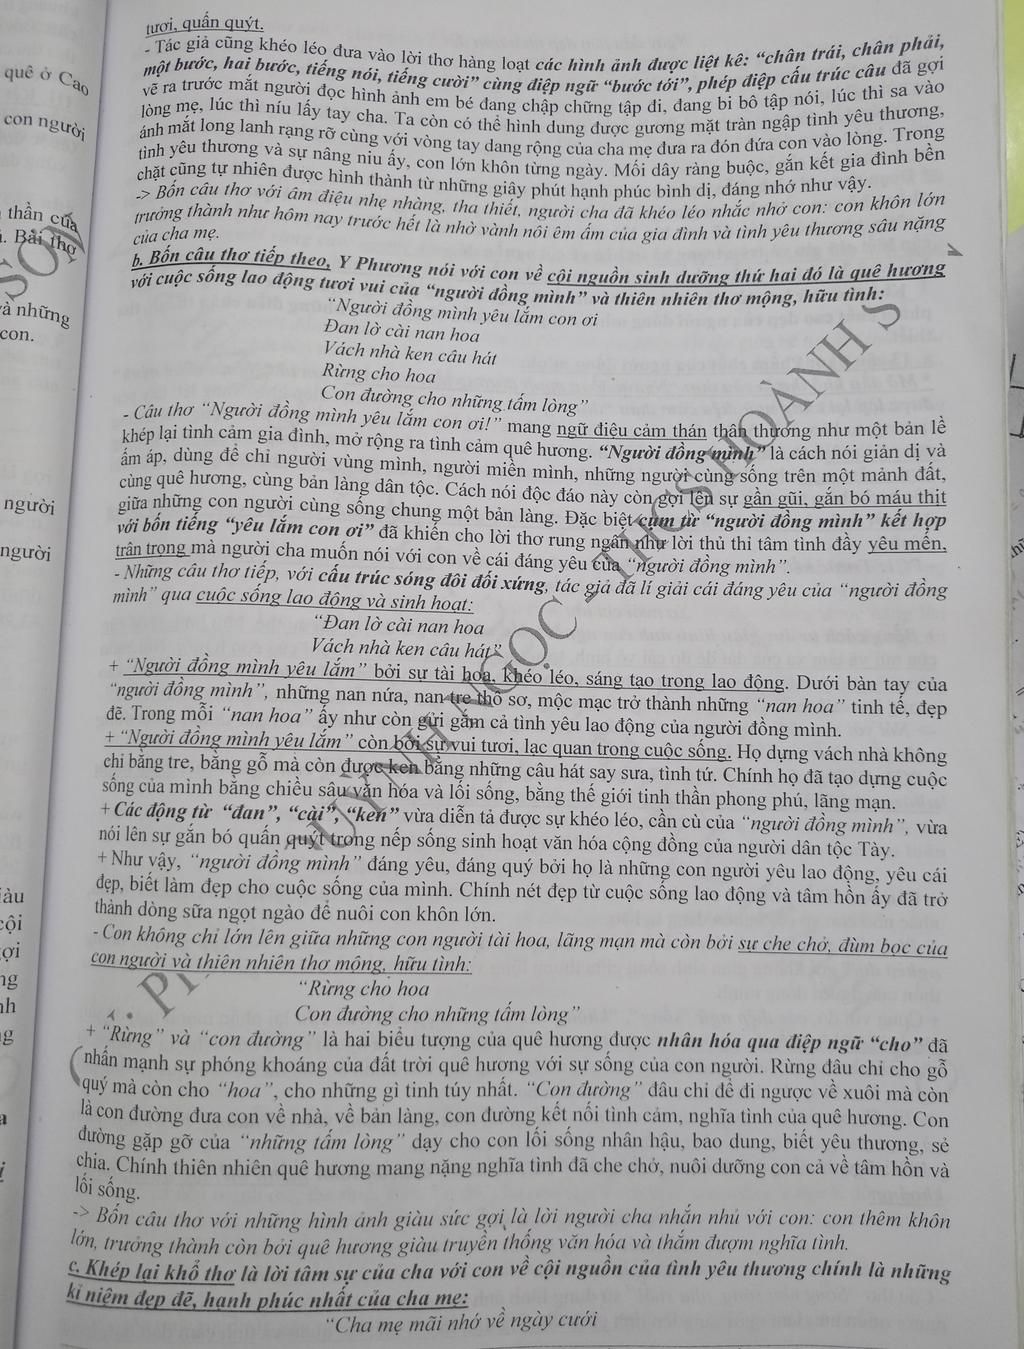 tươi, quấn quýt.
- Tác giả cũng khéo léo đưa vào lời thơ hàng loạt các hình ảnh được liệt kê: “chân trái, chân phải,
một bước, hai bước, tiếng nói, tiếng cười” cùng điệp ngữ “bước tới”, phép điệp cấu trúc câu đã gợi
vẽ ra trước mắt người đọc hình ảnh em bé đang chập chững tập đi, đang bi bô tập nói, lúc thì sa vào
lòng mẹ, lúc thì níu lấy tay cha. Ta còn có thể hình dung được gương mặt tràn ngập tình yêu thương,
ánh mắt long lanh rạng rỡ cùng với vòng tay dang rộng của cha mẹ đưa ra đón đứa con vào lòng. Trong
tình yêu thương và sự nâng niu ấy, con lớn khôn từng ngày. Mối dây ràng buộc, gắn kết gia đình bền
chặt cũng tự nhiên được hình thành từ những giây phút hạnh phúc bình dị, đáng nhớ như vậy.
-> Bốn câu thơ với âm điệu nhẹ nhàng, tha thiết, người cha đã khéo léo nhắc nhở con: con khôn lớn
trưởng thành như hôm nay trước hết là nhờ vành nôi êm ấm của gia đình và tình yêu thương sâu nặng
của cha mẹ.
b. Bốn câu thơ tiếp theo, Y Phương nói với con về cội nguồn sinh dưỡng thứ hai đó là quê hương
với cuộc sống lao động tươi vui của “người đồng mình” và thiên nhiên thơ mộng, hữu tình:
“Người đồng mình yêu lắm con ơi
Đan lờ cài nan hoa
Vách nhà ken câu hát
Rừng cho hoa
Con đường cho những tấm lòng”
- Câu thơ “Người đồng mình yêu lắm con ơi!” mang ngữ điệu cảm thán thân thương như một bản lề
khép lại tình cảm gia đình, mở rộng ra tình cảm quê hương. “Người đồng mình” là cách nói giản dị và
ấm áp, dùng để chỉ người vùng mình, người miền mình, những người cùng sống trên một mảnh đất,
cùng quê hương, cùng bản làng dân tộc. Cách nói độc đáo này còn gợi lên sự gần gũi, gắn bó máu thịt
giữa những con người cùng sống chung một bản làng. Đặc biệt cụm từ “người đồng mình” kết hợp
với bốn tiếng “yêu lắm con ơi” đã khiến cho lời thơ rung ngân như lời thủ thỉ tâm tình đầy yêu mến,
trân trọng mà người cha muốn nói với con về cái đáng yêu của “người đồng mình”.
- Những câu thơ tiếp, với cấu trúc sóng đôi đối xứng, tác giả đã lí giải cái đáng yêu của “người đồng
mình” qua cuộc sống lao động và sinh hoạt:
“Đan lờ cài nan hoa
Vách nhà ken câu hát”
+ “Người đồng mình yêu lắm” bởi sự tài hoa, khéo léo, sáng tạo trong lao động. Dưới bàn tay của
“người đồng mình”, những nan nứa, nan tre thô sơ, mộc mạc trở thành những “nan hoa” tinh tế, đẹp
đẽ. Trong mỗi “nan hoa” ấy như còn gửi gắm cả tình yêu lao động của người đồng mình.
+ “Người đồng mình yêu lắm” còn bởi sự vui tươi, lạc quan trong cuộc sống. Họ dựng vách nhà không
chỉ bằng tre, bằng gỗ mà còn được ken bằng những câu hát say sưa, tình tứ. Chính họ đã tạo dựng cuộc
sống của mình bằng chiều sâu văn hóa và lối sống, bằng thế giới tinh thần phong phú, lãng mạn.
+ Các động từ “đan”, “cài”, “ken” vừa diễn tả được sự khéo léo, cần cù của “người đồng mình”, vừa
nói lên sự gắn bó quấn quýt trong nếp sống sinh hoạt văn hóa cộng đồng của người dân tộc Tày.
+ Như vậy, “người đồng mình” đáng yêu, đáng quý bởi họ là những con người yêu lao động, yêu cái
đẹp, biết làm đẹp cho cuộc sống của mình. Chính nét đẹp từ cuộc sống lao động và tâm hồn ấy đã trở
thành dòng sữa ngọt ngào để nuôi con khôn lớn.
- Con không chỉ lớn lên giữa những con người tài hoa, lãng mạn mà còn bởi sự che chở, đùm bọc của
con người và thiên nhiên thơ mộng, hữu tình:
“Rừng cho hoa
Con đường cho những tấm lòng”
+ “Rừng” và “con đường” là hai biểu tượng của quê hương được nhân hóa qua điệp ngữ “cho” đã
nhấn mạnh sự phóng khoáng của đất trời quê hương với sự sống của con người. Rừng đâu chỉ cho gỗ
quý mà còn cho “hoa”, cho những gì tinh túy nhất. “Con đường” đâu chỉ để đi ngược về xuôi mà còn
là con đường đưa con về nhà, về bản làng, con đường kết nối tình cảm, nghĩa tình của quê hương. Con
đường gặp gỡ của “những tấm lòng” dạy cho con lối sống nhân hậu, bao dung, biết yêu thương, sẻ
chia. Chính thiên nhiên quê hương mang nặng nghĩa tình đã che chở, nuôi dưỡng con cả về tâm hồn và
lối sống.
-> Bốn câu thơ với những hình ảnh giàu sức gợi là lời người cha nhắn nhủ với con: con thêm khôn
lớn, trưởng thành còn bởi quê hương giàu truyền thống văn hóa và thắm đượm nghĩa tình.
c. Khép lại khổ thơ là lời tâm sự của cha với con về cội nguồn của tình yêu thương chính là những
kỉ niệm đẹp đẽ, hạnh phúc nhất của cha mẹ:
“Cha mẹ mãi nhớ về ngày cưới
quê ở Cao
con người
thần của
Bài thơ
và những
con.
người
người